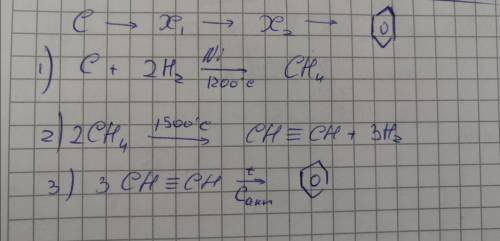 C → X₁ → X₂ → ⌬
1) C + 2H₂ —Ni, 1200°C→ CH₄
2) 2CH₄ —1500°C→ CH≡CH + 3H₂
3) 3 CH≡CH —t, Cакт→ ⌬